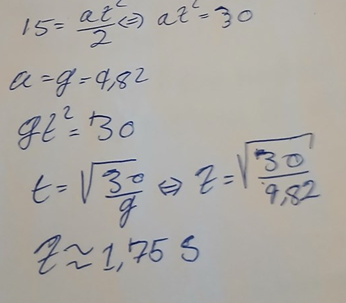 15 = at²/2 ⇔ at² = 30
a = g = 9,82
gt² = 30
t = √(30/g) ⇔ t = √(30/9,82)
t ≈ 1,75 s